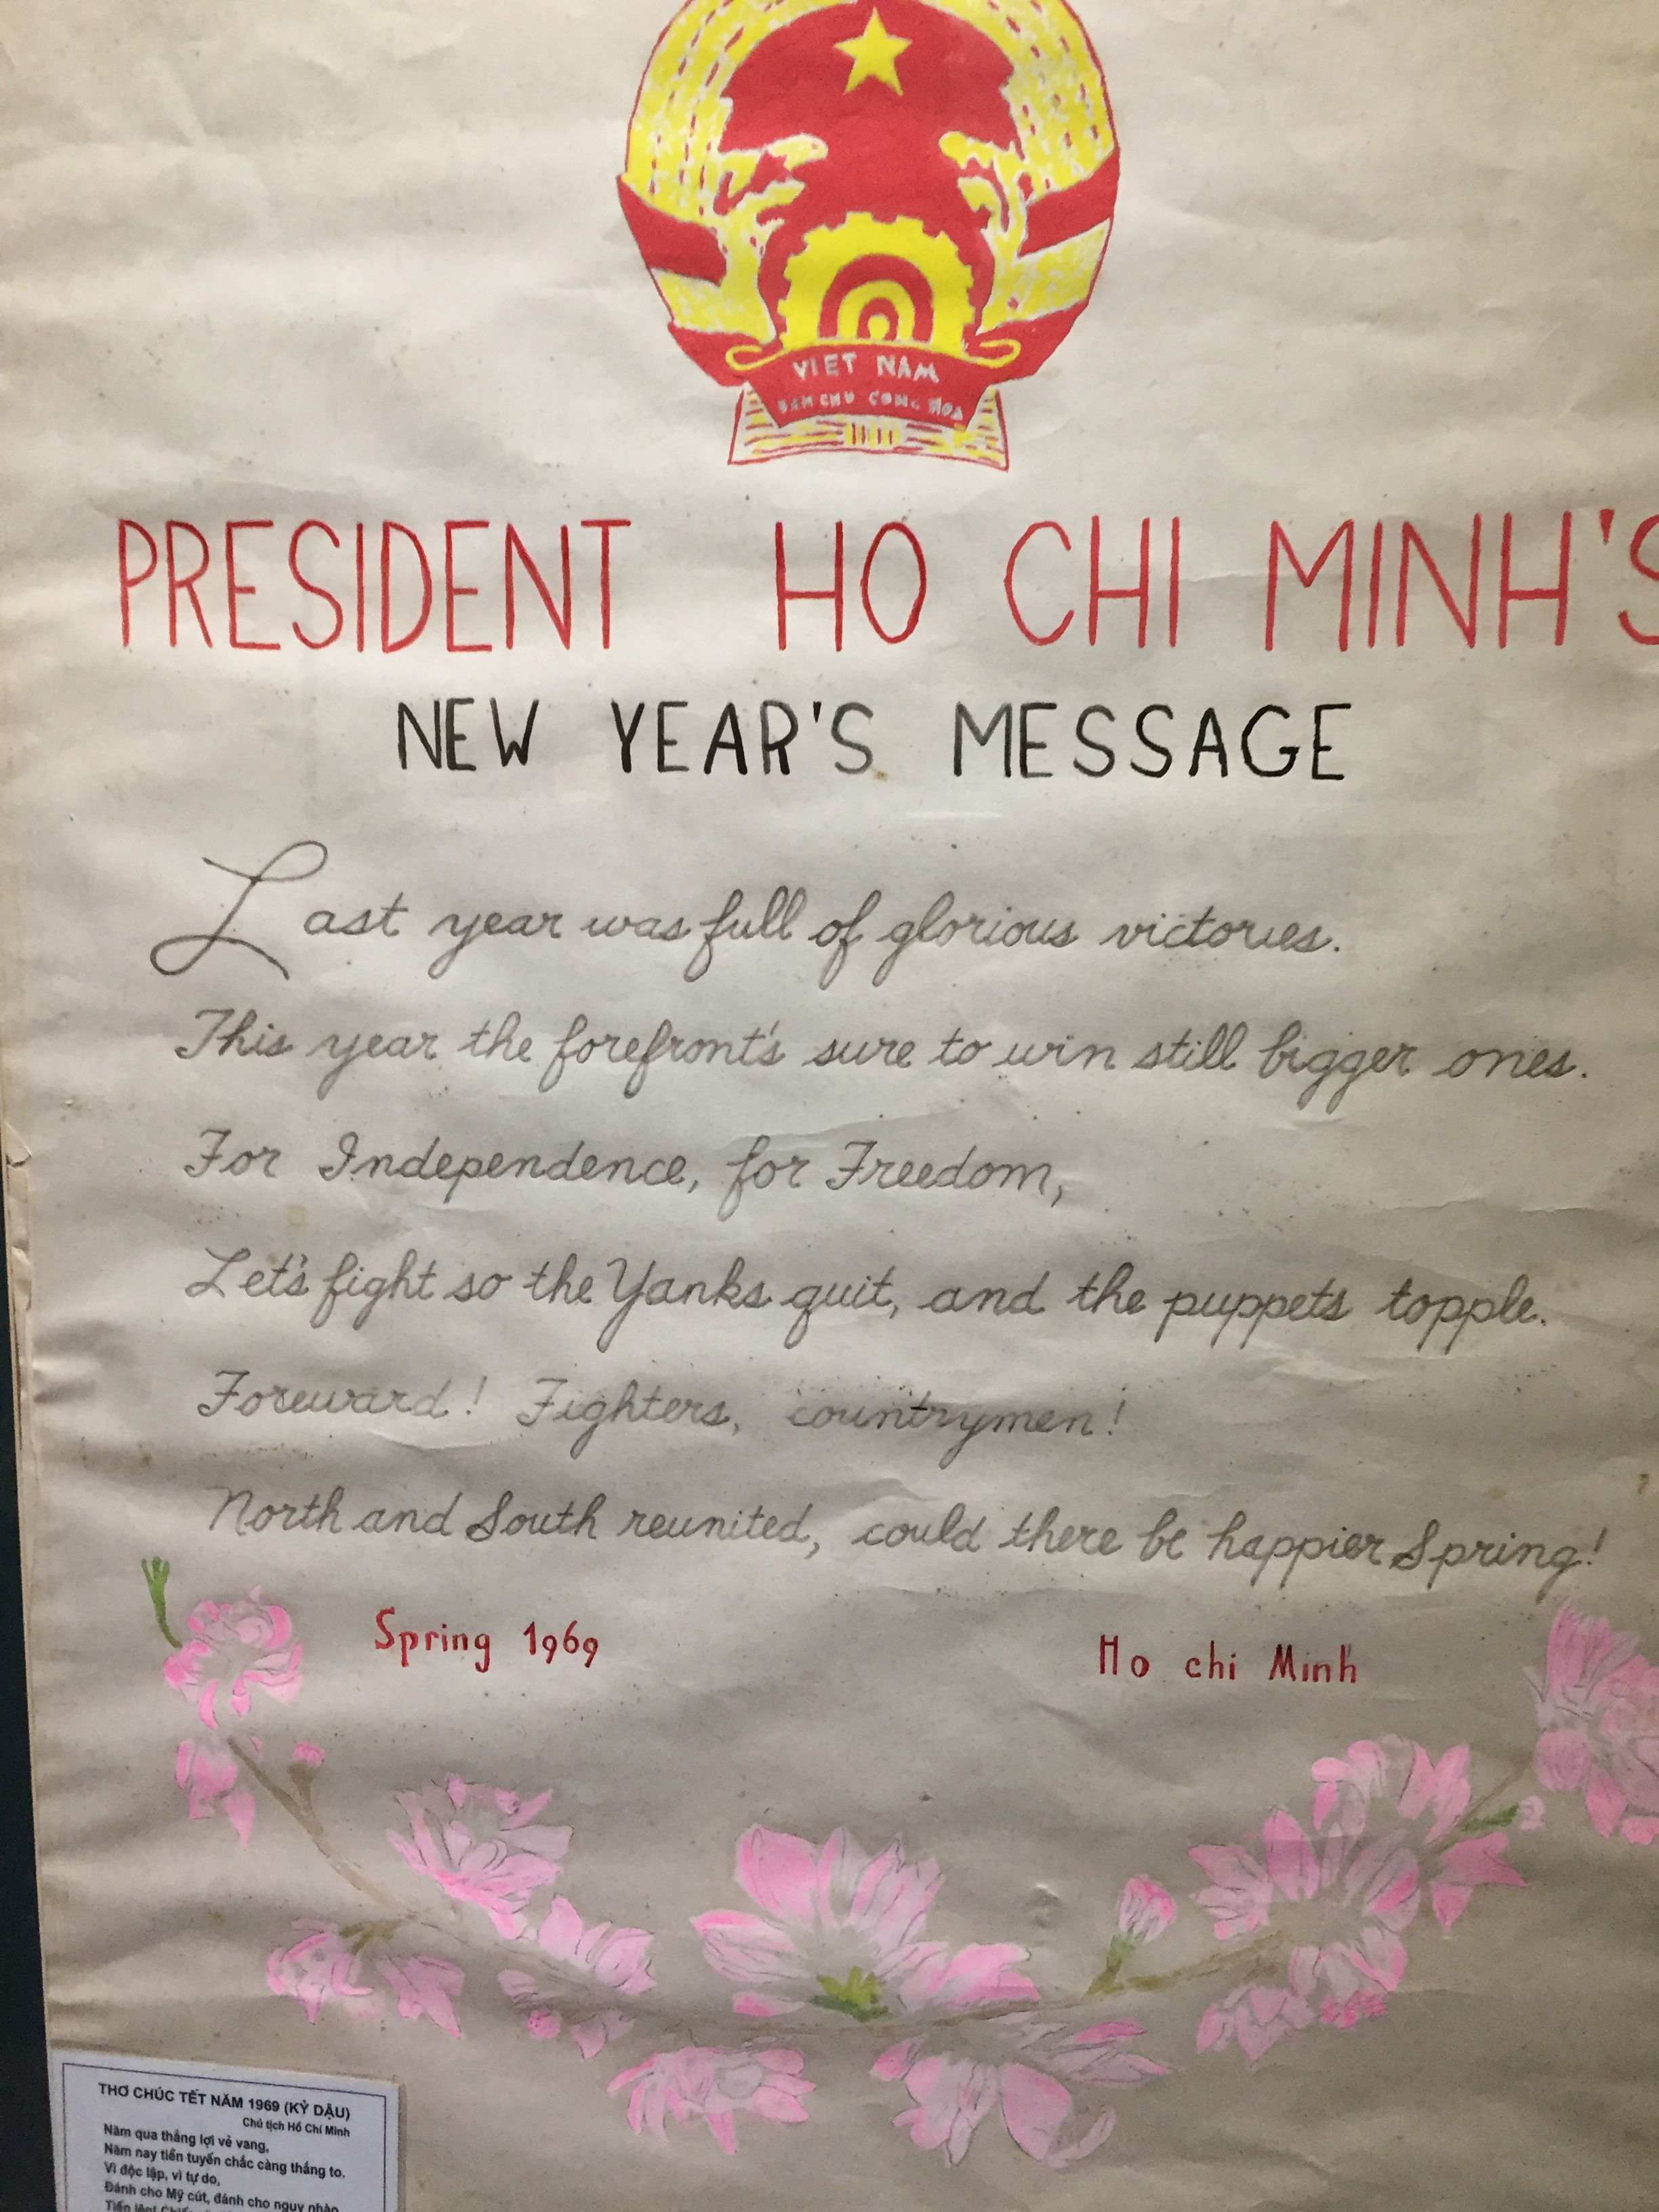 VIET NAM
DAN CHU CONG HOA
PRESIDENT HO CHI MINH'S
NEW YEAR'S MESSAGE
Last year was full of glorious victories.
This year the forefront's sure to win still bigger ones.
For Independence, for Freedom,
Let's fight so the Yanks quit, and the puppets topple.
Foreward! Fighters, countrymen!
North and South reunited, could there be happier Spring!
Spring 1969 Ho chi Minh
THƠ CHÚC TẾT NĂM 1969 (KỶ DẬU)
Chủ tịch Hồ Chí Minh
Năm qua thắng lợi vẻ vang,
Năm nay tiền tuyến chắc càng thắng to.
Vì độc lập, vì tự do,
Đánh cho Mỹ cút, đánh cho ngụy nhào
Tiến lên!